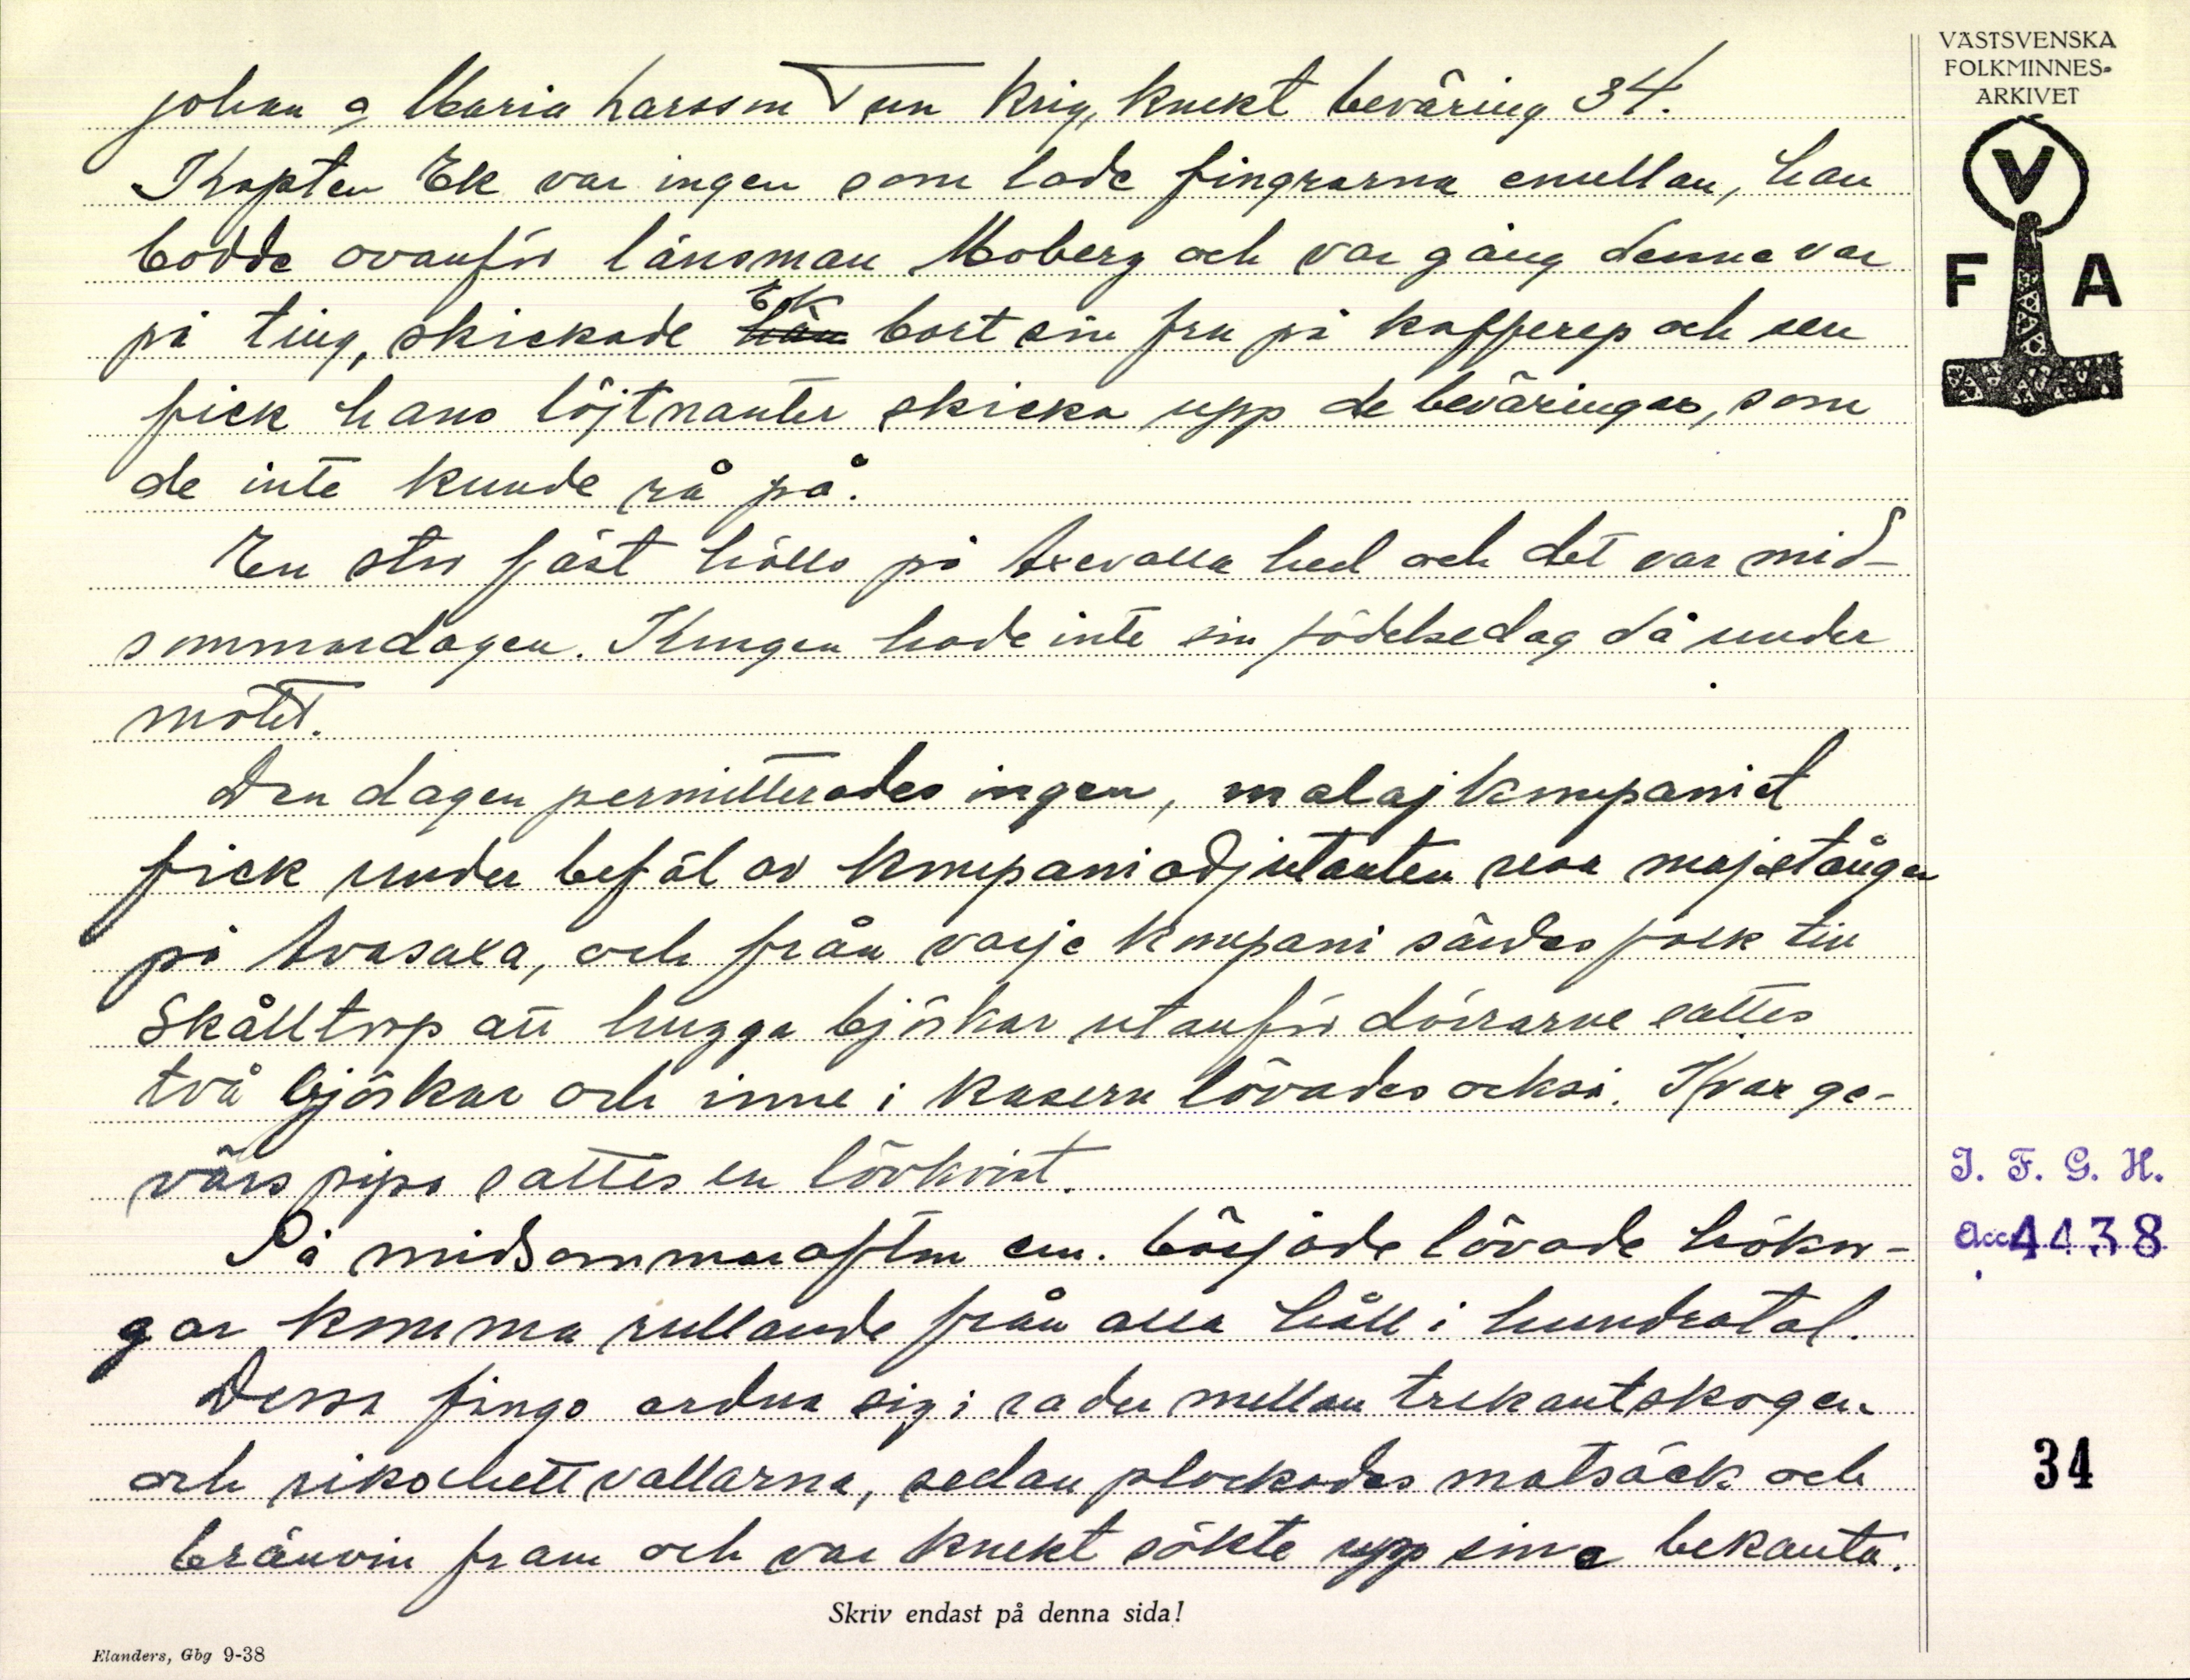 Johan o Maria Larsson V en Krig, Knekt beväring 34.
Kapten Ek var ingen som lade fingrarna emellan, han
bodde ovanför länsman Moberg och var gång denne var
på ting, skickade Ek bort sin fru på kafferep och sen
fick hans löjtnanter skicka upp de beväringar, som
de inte kunde rå på.
En stor fäst hölls på Axevalla hed och det var mid-
sommardagen. Kungen hade inte sin födelsedag då under
mötet.
Den dagen permitterades ingen, malajkompaniet
fick under befäl av kompaniadjutanten resa majstången
på Avasaxa, och från varje kompani sändes folk till
Skålltorp att hugga björkar utanför dörrarne sattes
två björkar och inne i kasern lövades också. I var ge-
värs pipa sattes en lövkvist.
På midsommarafton em. började lövade hökor-
gar komma rullande från alla håll i hundratal.
Dessa fingo ordna sig i rader mellan trekantskogen
och rikochettvallarna, sedan plockades matsäck och
bränvin fram och var knekt sökte upp sina bekanta.
Skriv endast på denna sida!
Elanders, Gbg 9-38
VÄSTSVENSKA
FOLKMINNES-
ARKIVET
V
F A
I. F. G. H.
Acc 4438
34